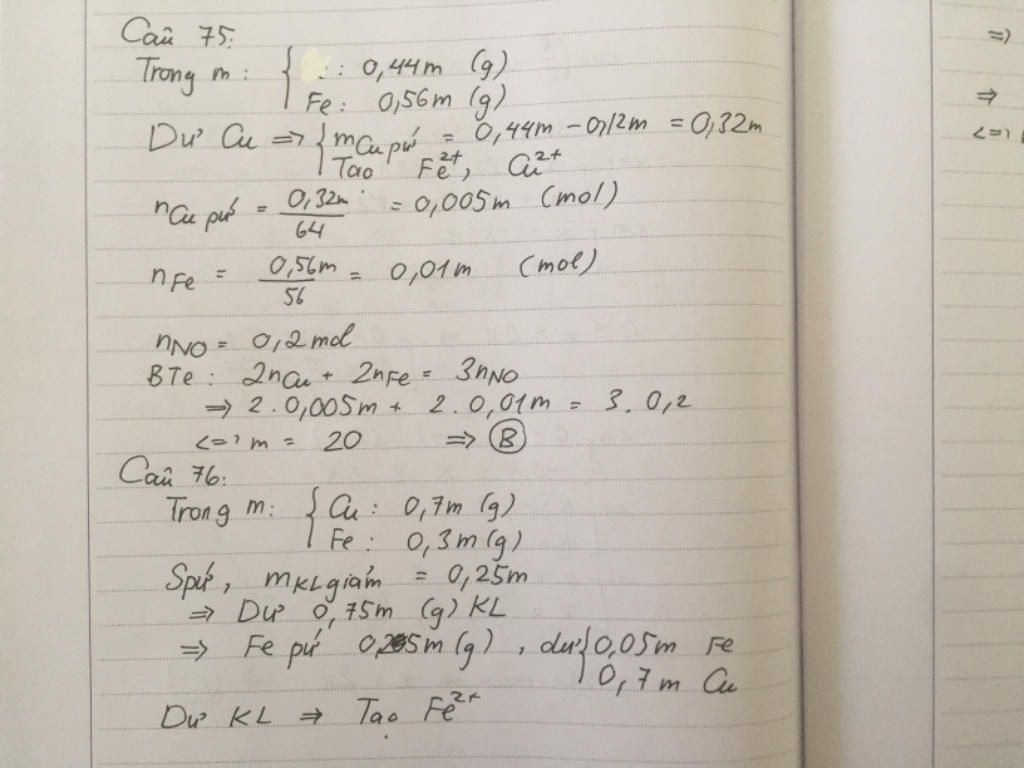 Câu 75:
Trong m: { : 0,44m (g)
Fe: 0,56m (g)
Dư Cu => { mCu pứ = 0,44m - 0,12m = 0,32m
Tạo Fe2+, Cu2+
nCu pứ = 0,32m/64 = 0,005m (mol)
nFe = 0,56m/56 = 0,01m (mol)
nNO = 0,2 mol
BTe: 2nCu + 2nFe = 3nNO
=> 2.0,005m + 2.0,01m = 3.0,2
<=> m = 20 => B
Câu 76:
Trong m: { Cu: 0,7m (g)
Fe: 0,3m (g)
Spứ, mKL giảm = 0,25m
=> Dư 0,75m (g) KL
=> Fe pứ 0,25m (g), dư { 0,05m Fe
0,7m Cu
Dư KL => Tạo Fe2+
=)
=>
<=>